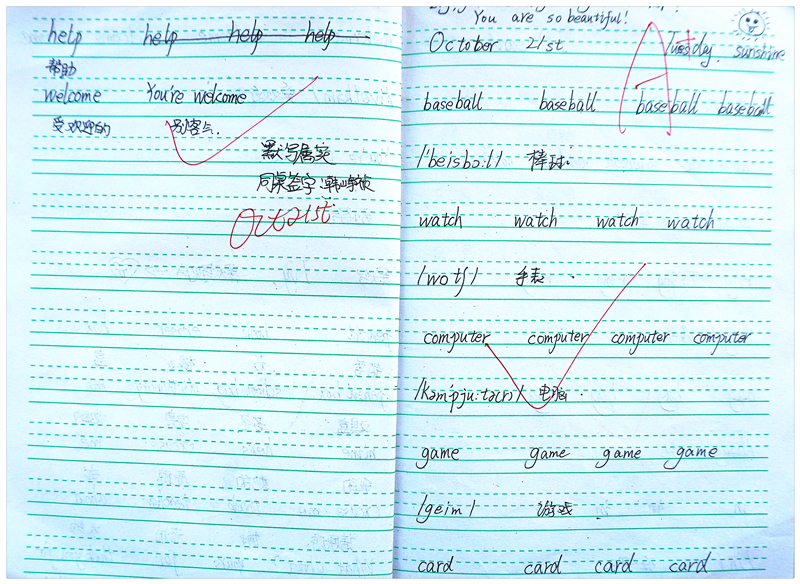 help help help help
帮助
welcome You're welcome
受欢迎的 别客气.
默写属实
同桌签字:
Oct 21st
You are so beautiful!
October 21st Tuesday. sunshine
baseball baseball baseball baseball
/'beisbɔ:l/ 棒球.
watch watch watch watch
/wotʃ/ 手表.
computer computer computer computer
/kəm'pju:tə(r)/ 电脑.
game game game game
/geim/ 游戏.
card card card card